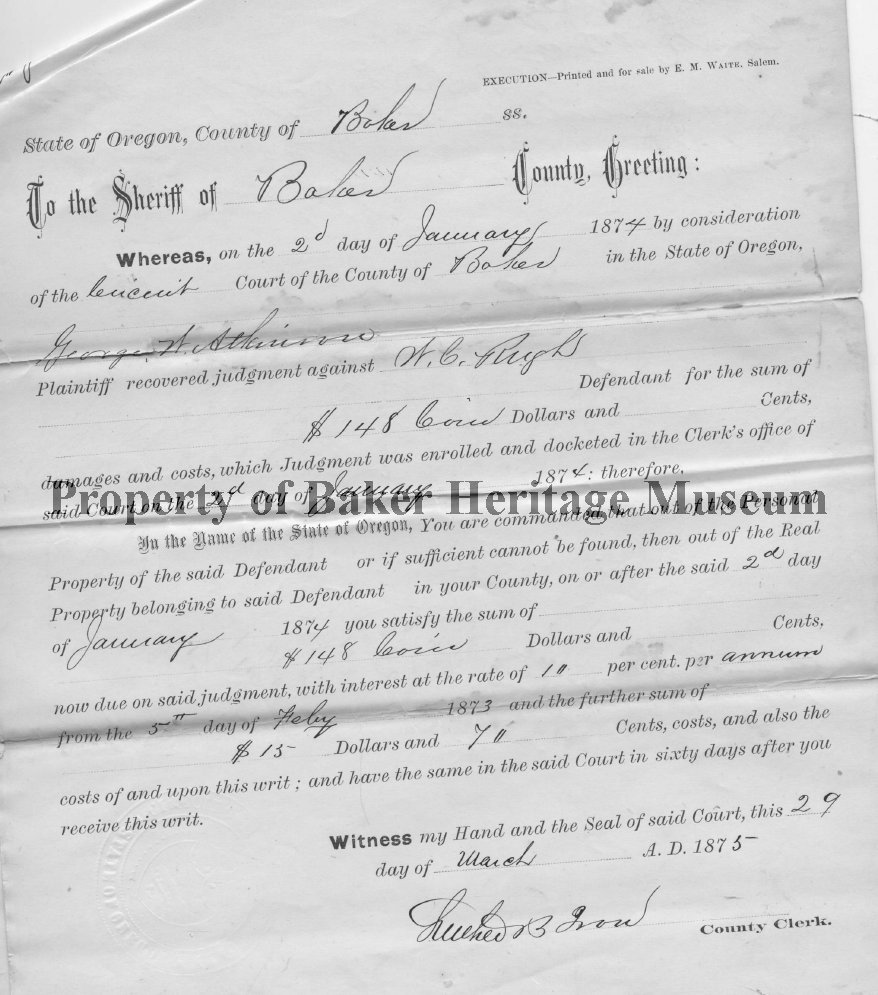 EXECUTION—Printed and for sale by E. M. WAITE, Salem.
State of Oregon, County of Baker ss.
To the Sheriff of Baker County, Greeting:
Whereas, on the 2d day of January 1874 by consideration
of the Circuit Court of the County of Baker in the State of Oregon,
George W. Atkinson
Plaintiff recovered judgment against W. C. Rugh
Defendant for the sum of
$148 Coin Dollars and Cents,
damages and costs, which Judgment was enrolled and docketed in the Clerk's office of
said Court on the 2nd day of January 1874: therefore,
Property of Baker Heritage Museum
In the Name of the State of Oregon, You are commanded that out of the Personal
Property of the said Defendant or if sufficient cannot be found, then out of the Real
Property belonging to said Defendant in your County, on or after the said 2d day
of January 1874 you satisfy the sum of
$148 Coin Dollars and Cents,
now due on said judgment, with interest at the rate of 1" per cent. per annum
from the 5th day of Feby 1873 and the further sum of
$15 Dollars and 7" Cents, costs, and also the
costs of and upon this writ; and have the same in the said Court in sixty days after you
receive this writ.
Witness my Hand and the Seal of said Court, this 29
day of March A. D. 1875
B County Clerk.